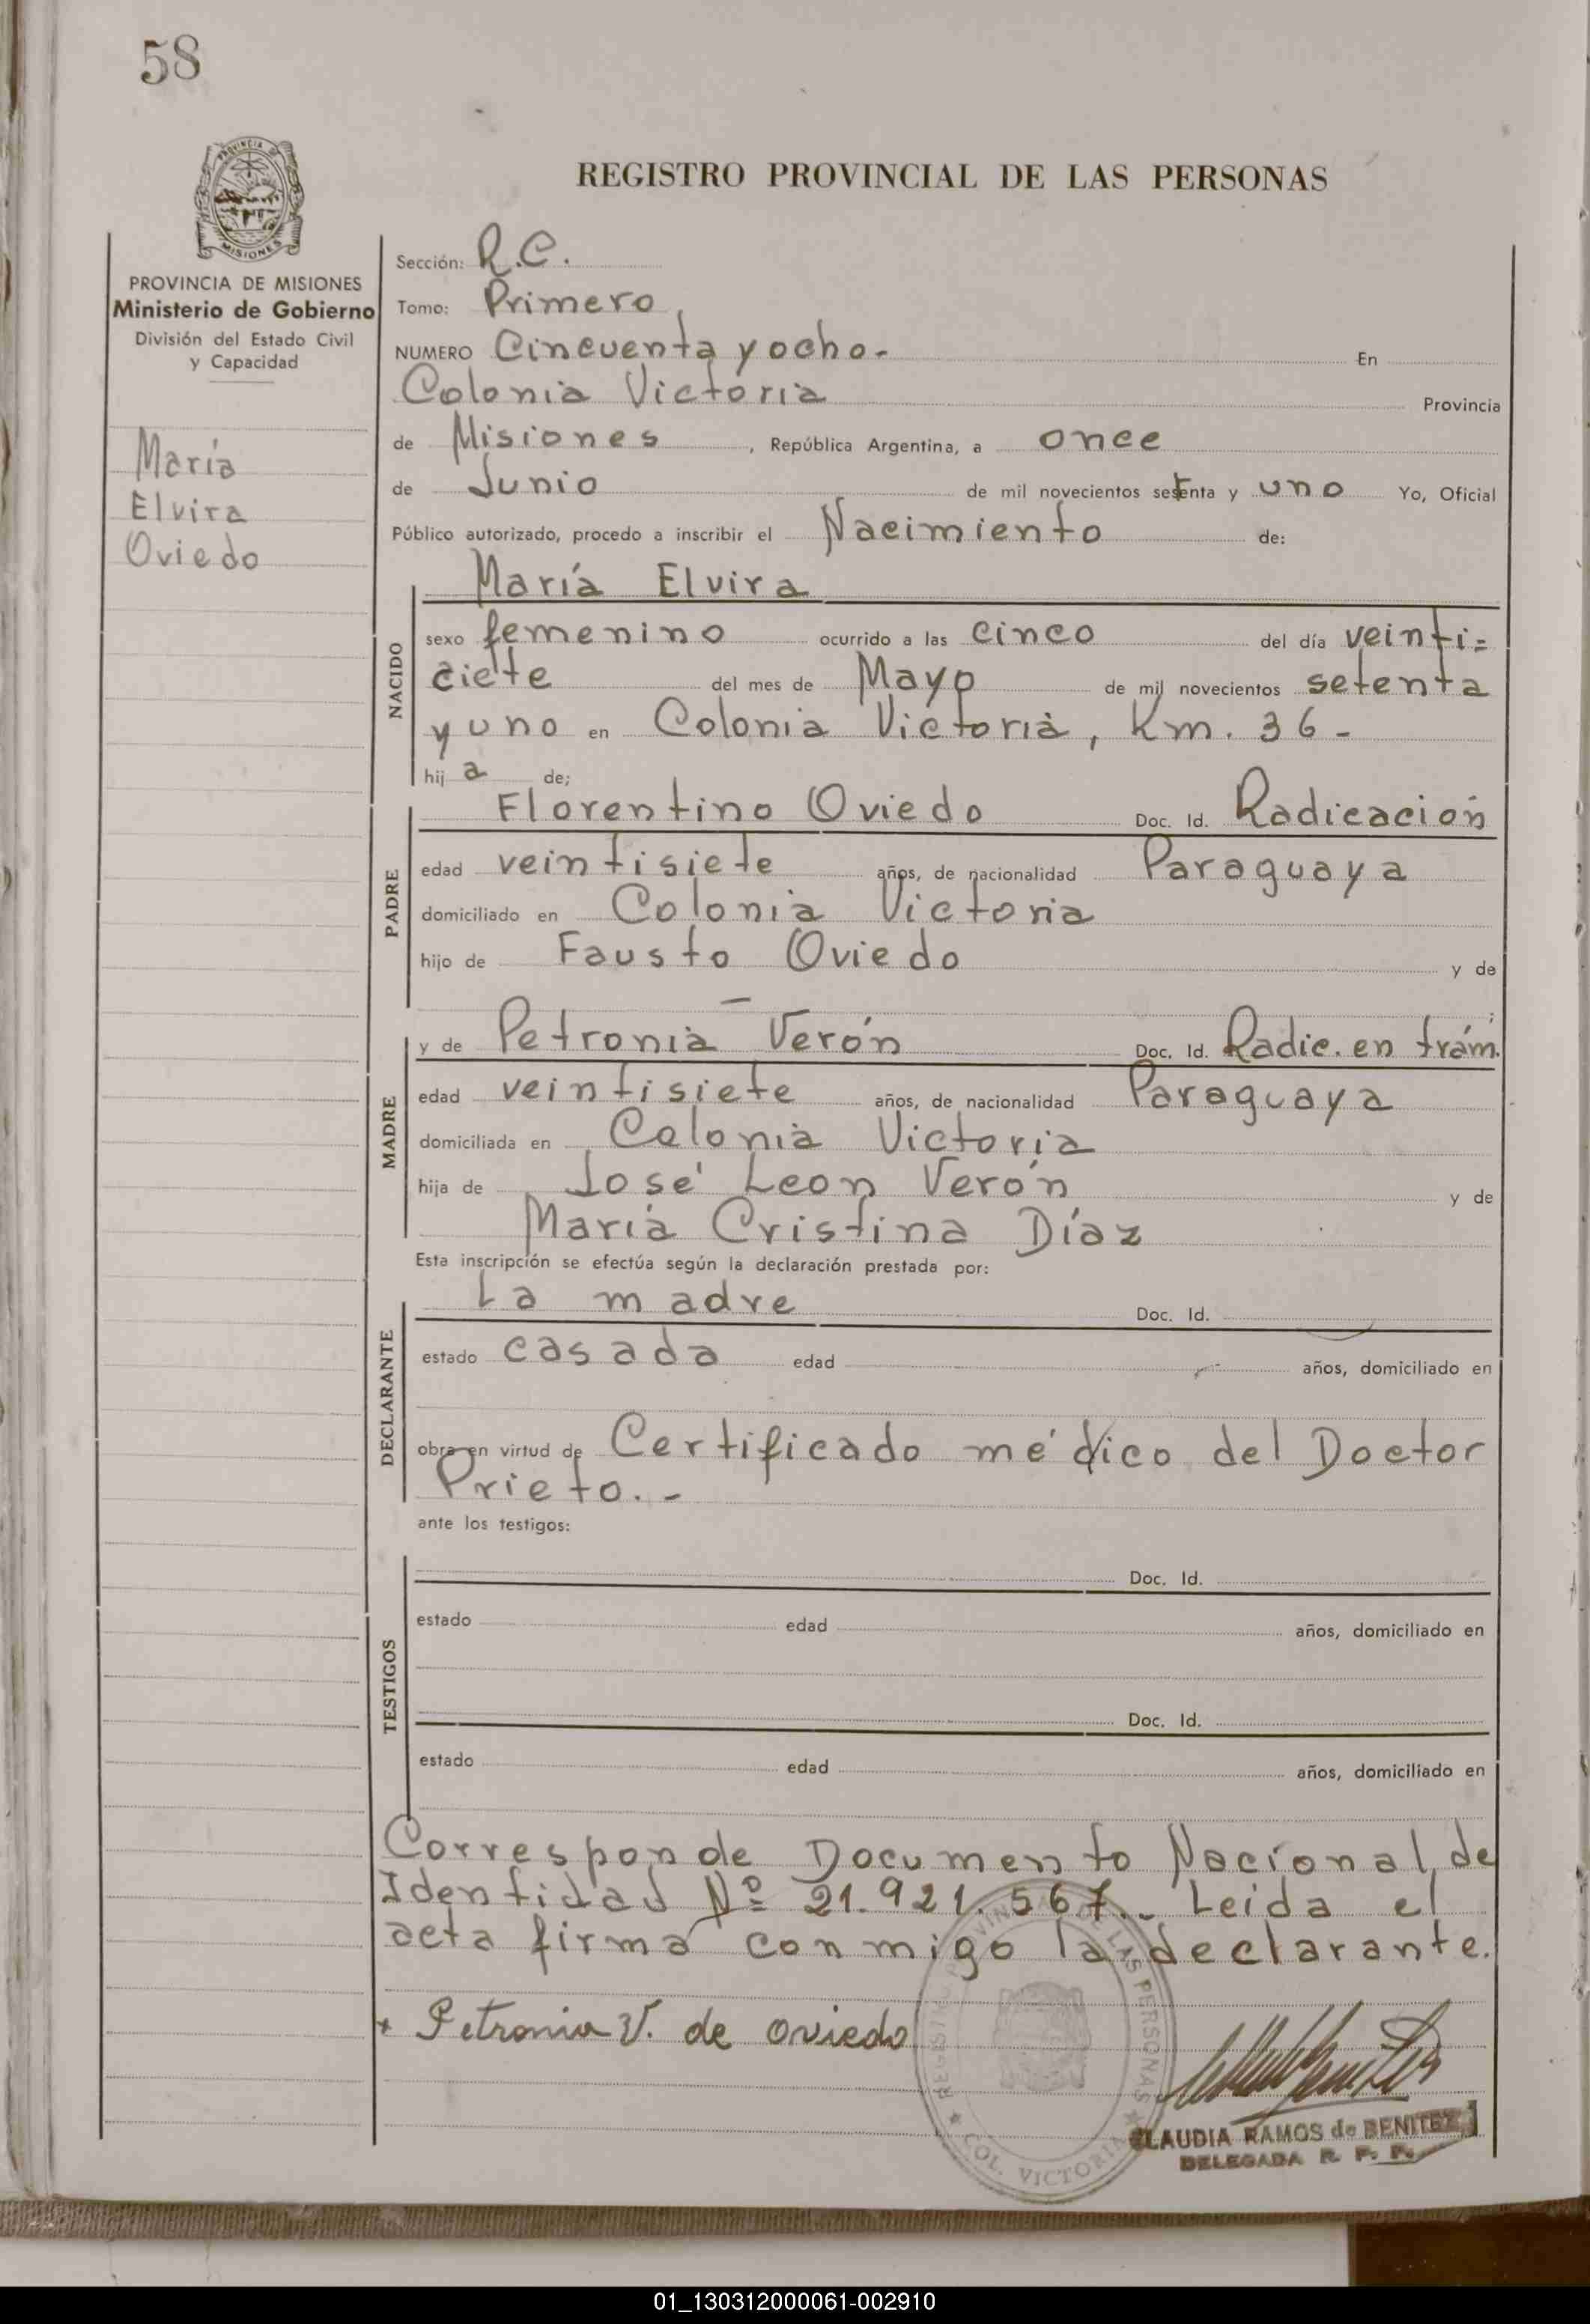 58
PROVINCIA DE MISIONES
REGISTRO PROVINCIAL DE LAS PERSONAS
PROVINCIA DE MISIONES
Ministerio de Gobierno
División del Estado Civil
y Capacidad
María
Elvira
Oviedo
Sección: R.C.
Tomo: Primero
NUMERO Cincuenta y ocho.- En
Colonia Victoria Provincia
de Misiones, República Argentina, a once
de Junio de mil novecientos setenta y uno Yo, Oficial
Público autorizado, procedo a inscribir el Nacimiento de:
NACIDO
María Elvira
sexo femenino ocurrido a las cinco del día veinti=
ciete del mes de Mayo de mil novecientos setenta
y uno en Colonia Victoria, Km. 36-
hija de;
PADRE
Florentino Oviedo Doc. Id. Radicación
edad veintisiete años, de nacionalidad Paraguaya
domiciliado en Colonia Victoria
hijo de Fausto Oviedo y de
— ;
MADRE
y de Petronia Verón Doc. Id. Radic. en trám.
edad veintisiete años, de nacionalidad Paraguaya
domiciliada en Colonia Victoria
hija de José Leon Verón y de
María Cristina Díaz
Esta inscripción se efectúa según la declaración prestada por:
DECLARANTE
La madre Doc. Id.
estado casada edad años, domiciliado en
obra en virtud de Certificado médico del Doctor
Prieto.-
ante los testigos:
TESTIGOS
Doc. Id.
estado edad años, domiciliado en
Doc. Id.
estado edad años, domiciliado en
Corresponde Documento Nacional de
Identidad Nº 21.921.567.- Leida el
acta firma conmigo la declarante.
+ Petronia V. de Oviedo
COL. VICTORIA
CLAUDIA RAMOS de BENITEZ
DELEGADA R. P. P.
01_130312000061-002910